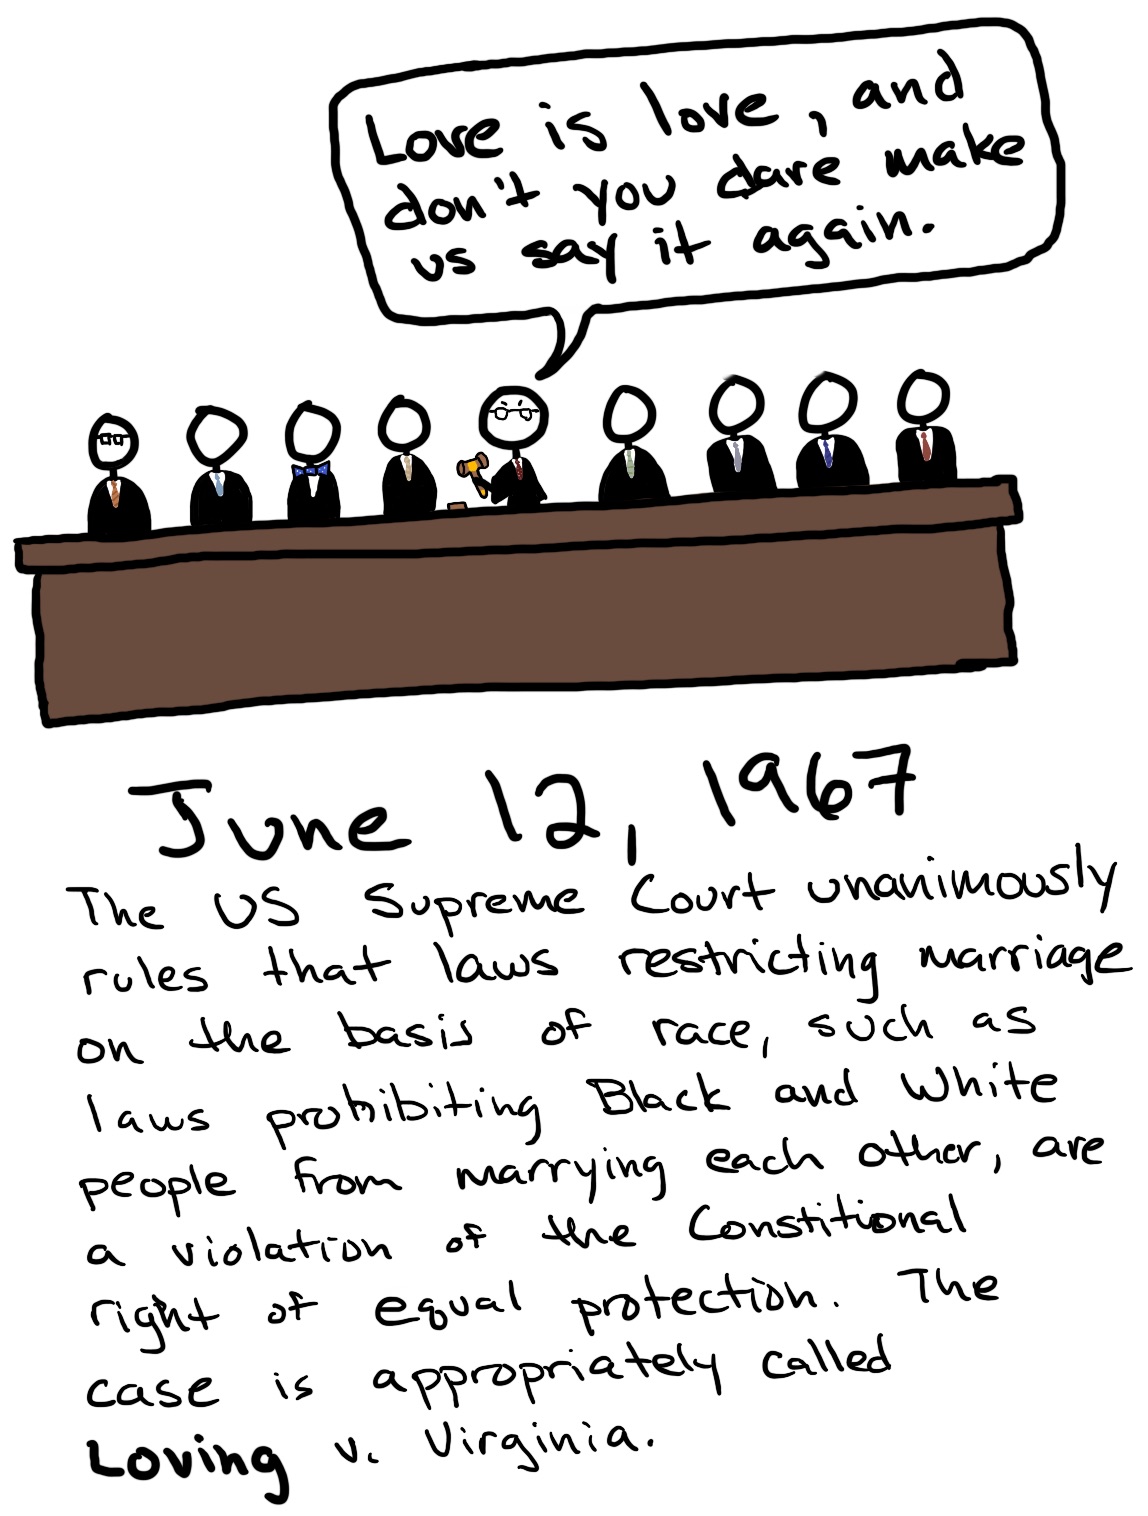 Love is love, and
don't you dare make
us say it again.
June 12, 1967
The US Supreme Court unanimously
rules that laws restricting marriage
on the basis of race, such as
laws prohibiting Black and White
people from marrying each other, are
a violation of the Constitional
right of equal protection. The
case is appropriately called
Loving v. Virginia.